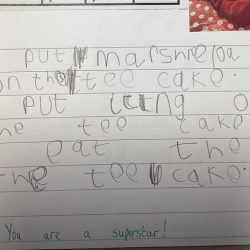 put marshmeloa
on the tee cake.
put icing o
he tee cake
eat the
the tee cake.
You are a superstar!